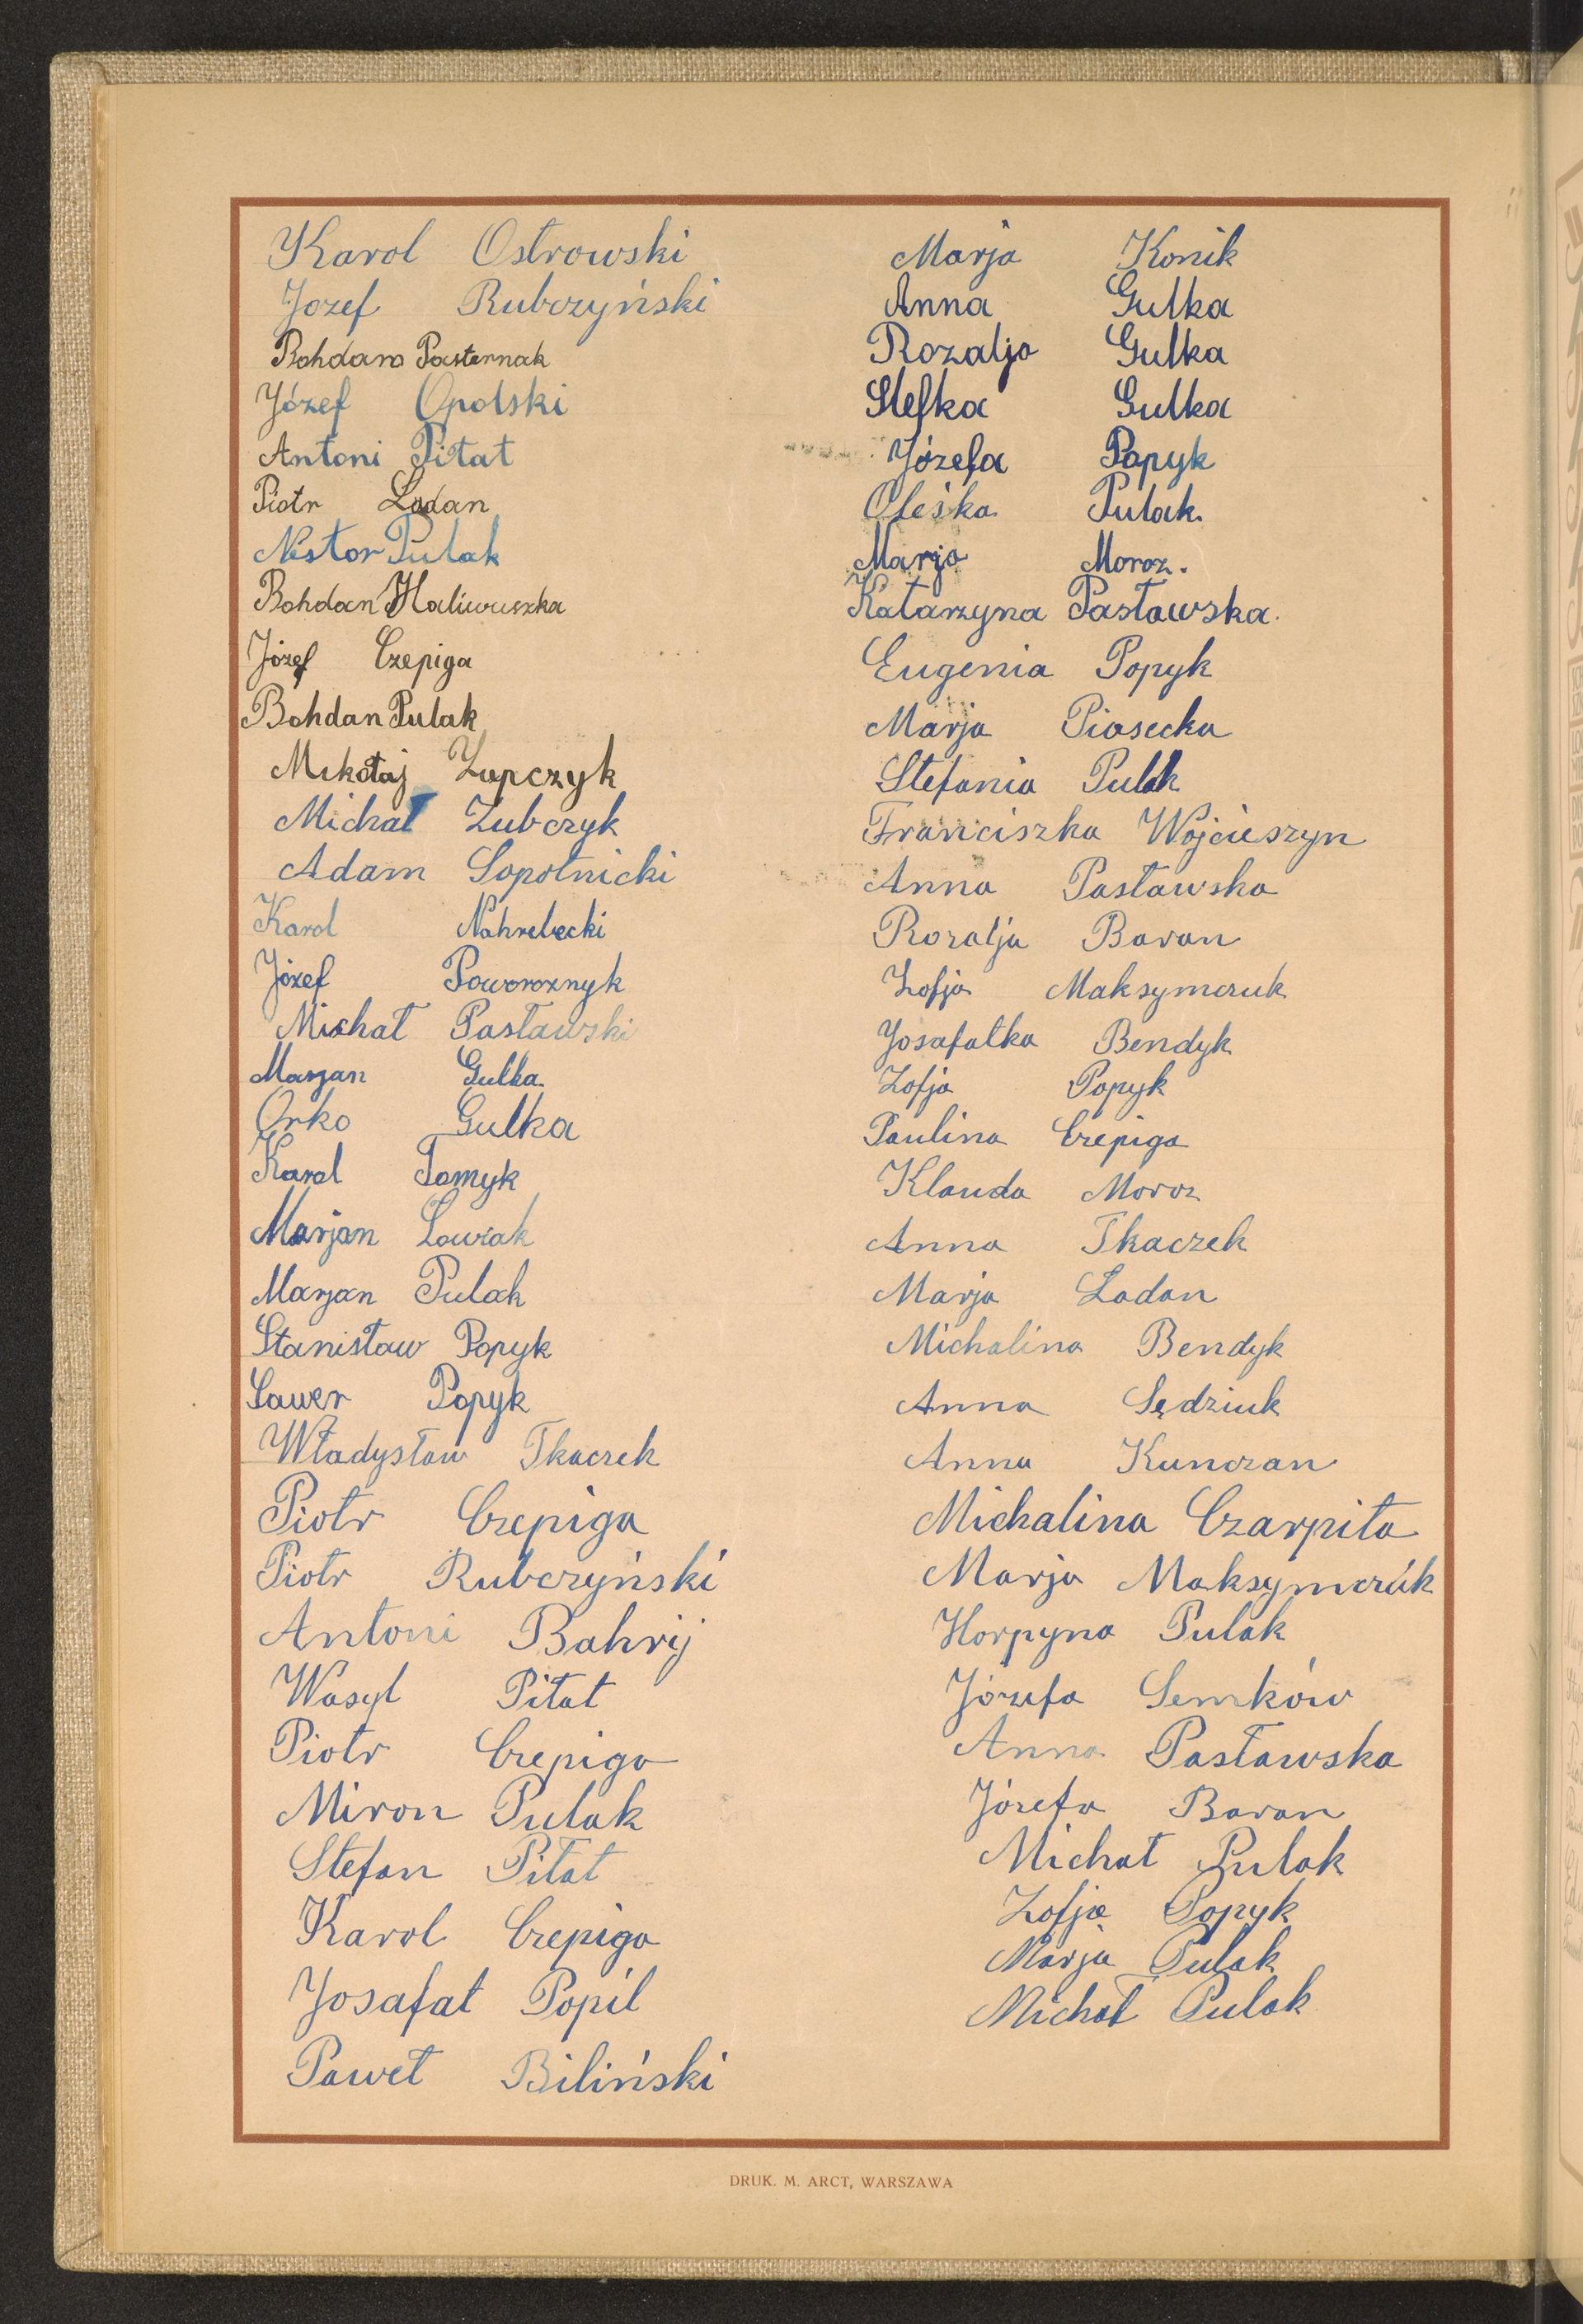 Karol Ostrowski
Jozef Rubczyński
Bohdan Pasternak
Józef Opolski
Antoni Pitat
Piotr Ladan
Nestor Pulak
Bohdan Haliwuszka
Józef Czepiga
Bohdan Pulak
Mikołaj Zupczyk
Michał Zubczyk
Adam Sopotnicki
Karol Nahrebecki
Józef Poworoznyk
Michał Pasławski
Marjan Gulka
Orko Gulka
Karol Tomyk
Marjan Pulak
Stanisław Popyk
Sawer Popyk
Władysław Tkaczek
Piotr Czepiga
Piotr Rubczyński
Antoni Bahrij
Wasyl Pitat
Piotr Czepiga
Miron Pulak
Stefan Pitat
Karol Czepiga
Josafat Popil
Paweł Biliński
Marja Konik
Anna Gulka
Rozalja Gulka
Stefka Gulka
Józefa Popyk
Oleśka Pulak.
Marja Moroz.
Katarzyna Pasławska.
Eugenia Popyk
Marja Piasecka
Stefania Pulak
Franciszka Wojcieszyn
Anna Pasławska
Rozalja Baran
Zofja Maksymczuk
Josafatka Bendyk
Zofja Popyk
Paulina Czepiga
Klauda Moroz
Anna Tkaczek
Marja Ladan
Michalina Bendyk
Anna Sędziuk
Anna Kunczan
Michalina Czarpita
Marja Maksymczúk
Horpyna Pulak
Józefa Semków
Anna Pasławska
Józefa Baran
Michał Pulak
Zofja Popyk
Marja Pulak
Michał Pulak
DRUK. M. ARCT, WARSZAWA